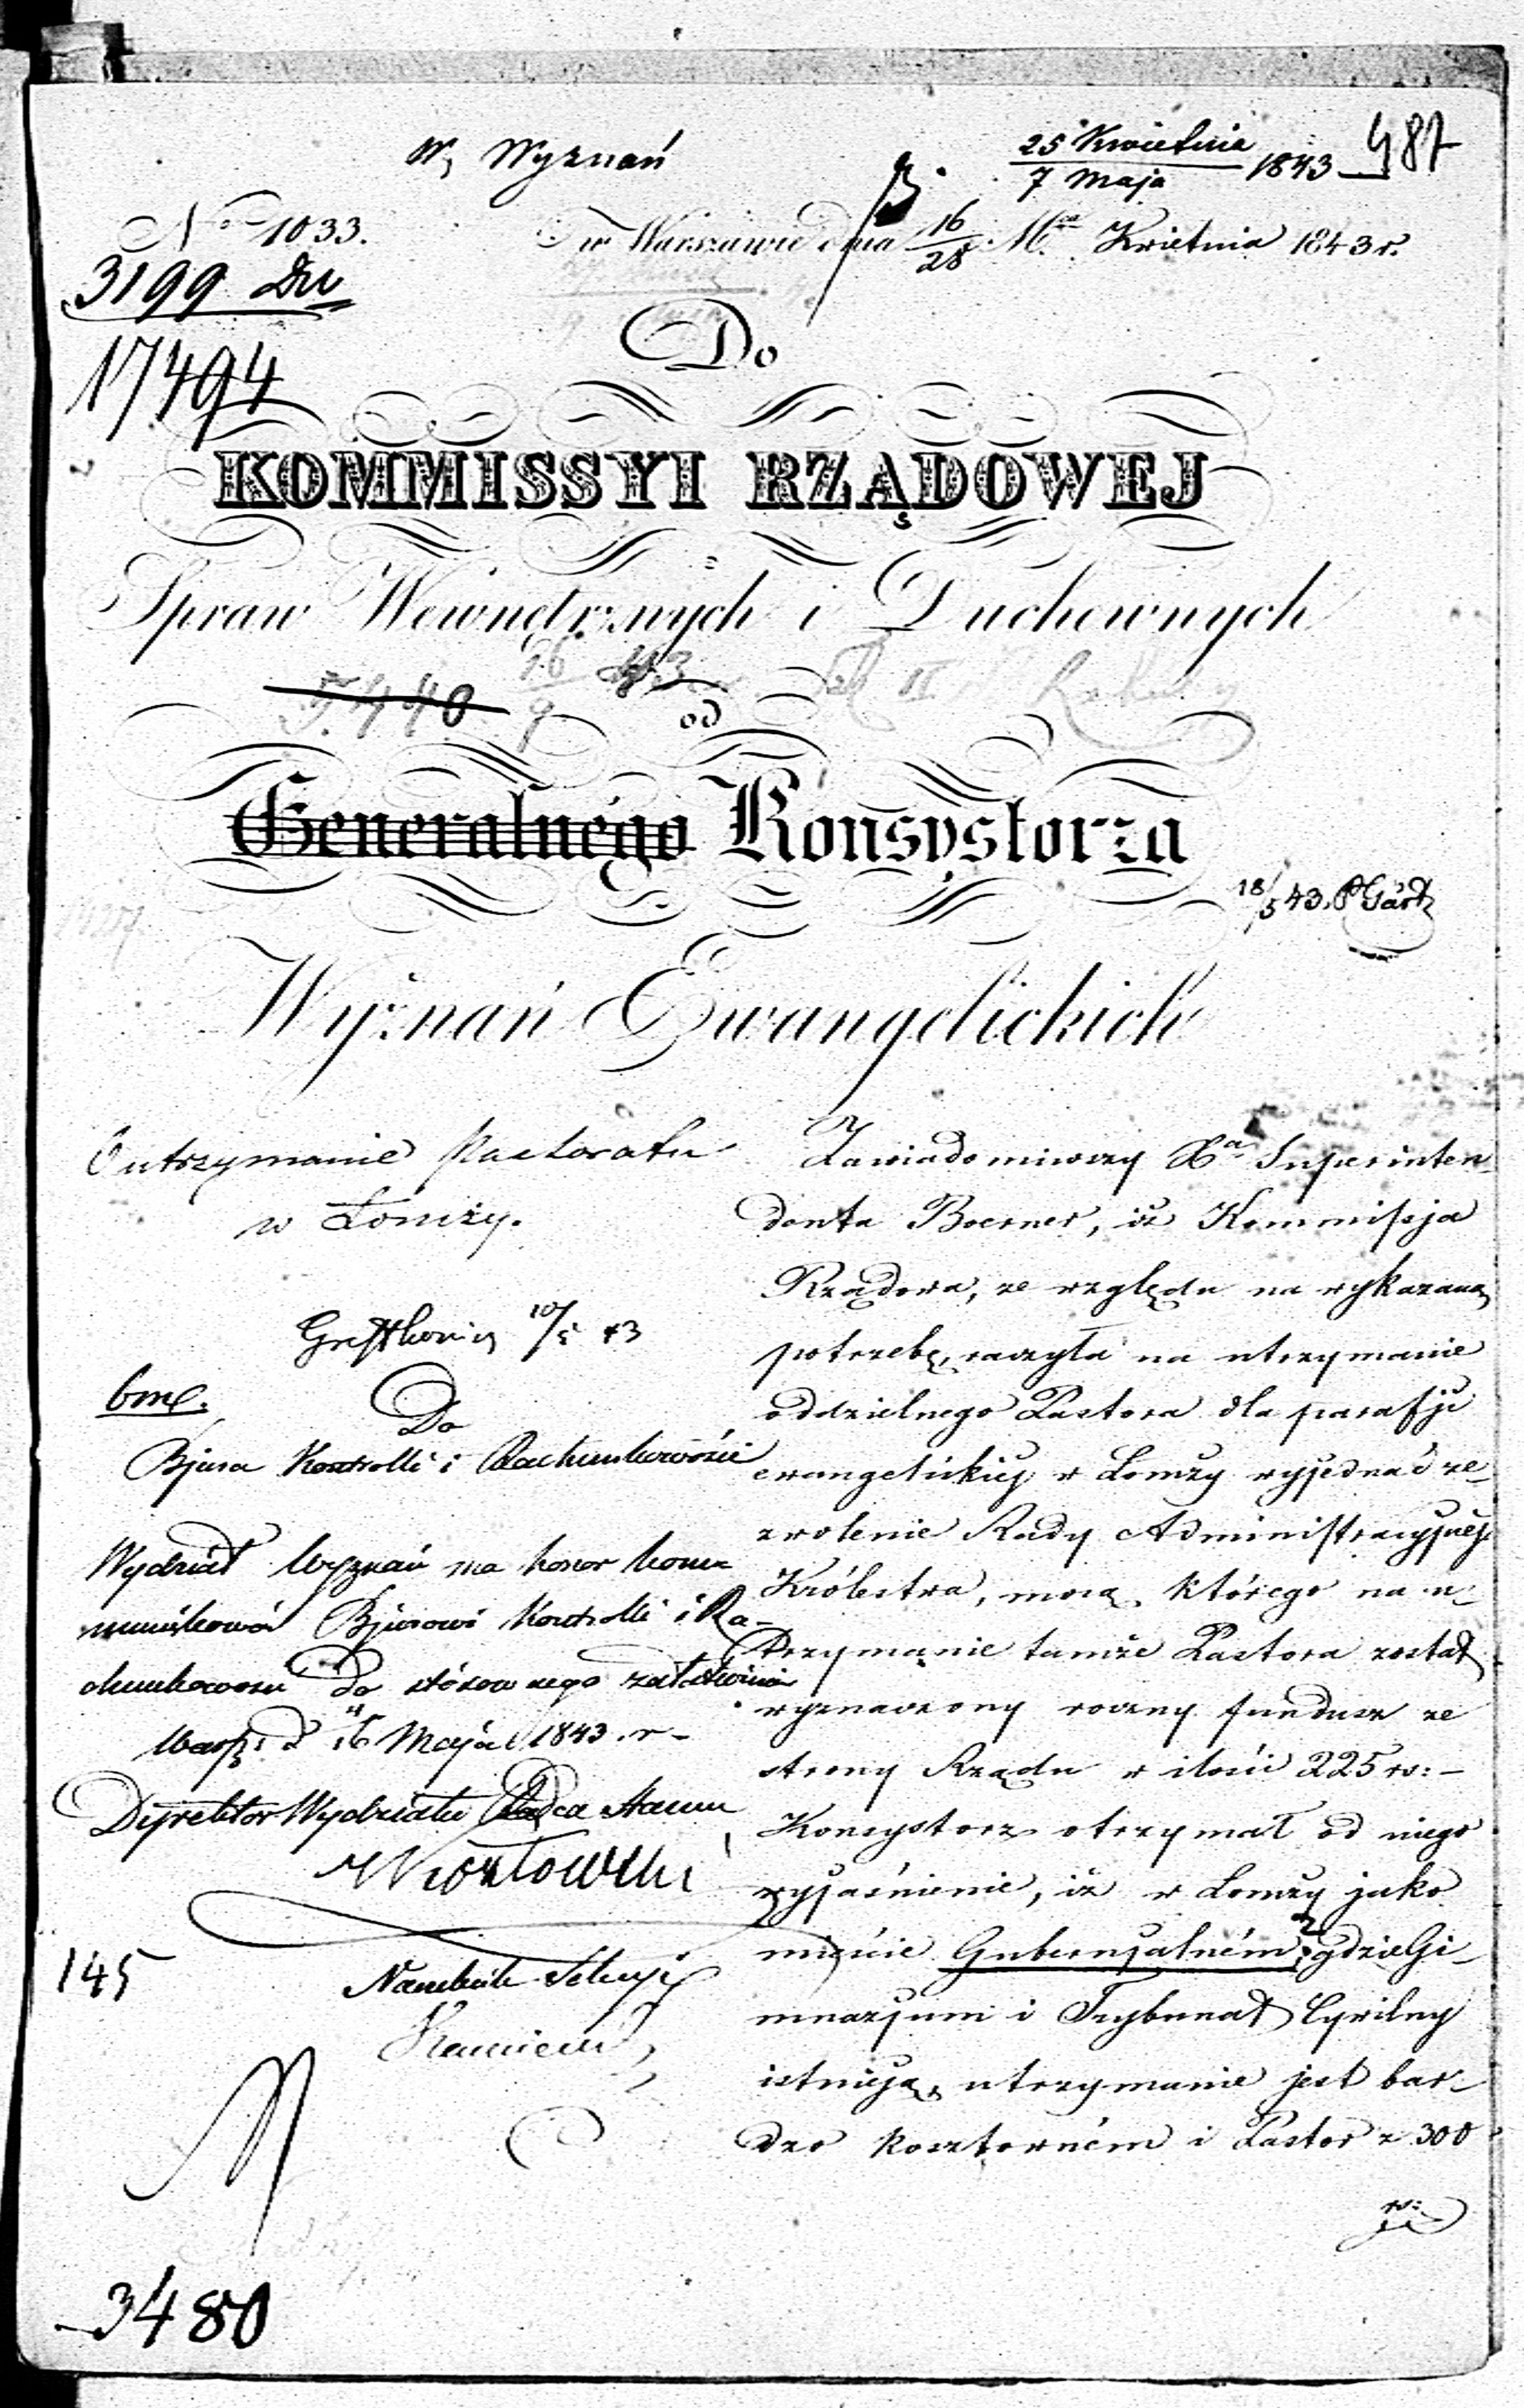 W. Wyznań
25 Kwietnia
7 Maja 1843
487
No 1033.
w Warszawie dnia 16/28 Mca Kwietnia 1843 r.
3199 Du
17494
Do
KOMMISSYI RZĄDOWEJ
Spraw Wewnętrznych i Duchownych
5440
od
Generalnégo Konsystorza
18/5 43.
Wyznań Ewangelickich
O utrzymanie Pastoratu
w Łomży.
10/5 43
bm.
Do
Bjura Kontrolli i Rachunkowości
Wydział Wyznań ma honor kommu
nikować Bjurowi Kontrolli i Ra-
chunkowości do stósownego załatwienia
Warsz. d 16 Maja 1843 r
Dyrektor Wydziału Radca Stanu
Naczelnik Sekcyi
145
3480
Zawiadomiwszy Xa Superinten-
denta Boerner, iż Kommissja
Rządowa, ze względu na wykazaną
potrzebę, raczyła na utrzymanie
oddzielnego Pastora dla parafji
ewangelickiej w Łomży wyjednać ze-
zwolenie Rady Administracyjnej
Królestwa, mocą którego na u-
trzymanie tamże Pastora został
wyznaczony roczny fundusz ze
strony Rządu w ilości 225 rs:-
Konsystorz otrzymał od niego
wyjaśnienie, iż w Łomży jako
mieście Gubernjalném, gdzie Gi-
mnazjum i Trybunał Cywilny
istnieją, utrzymanie jest bar-
dzo kosztowném i Pastor z 300
rs: